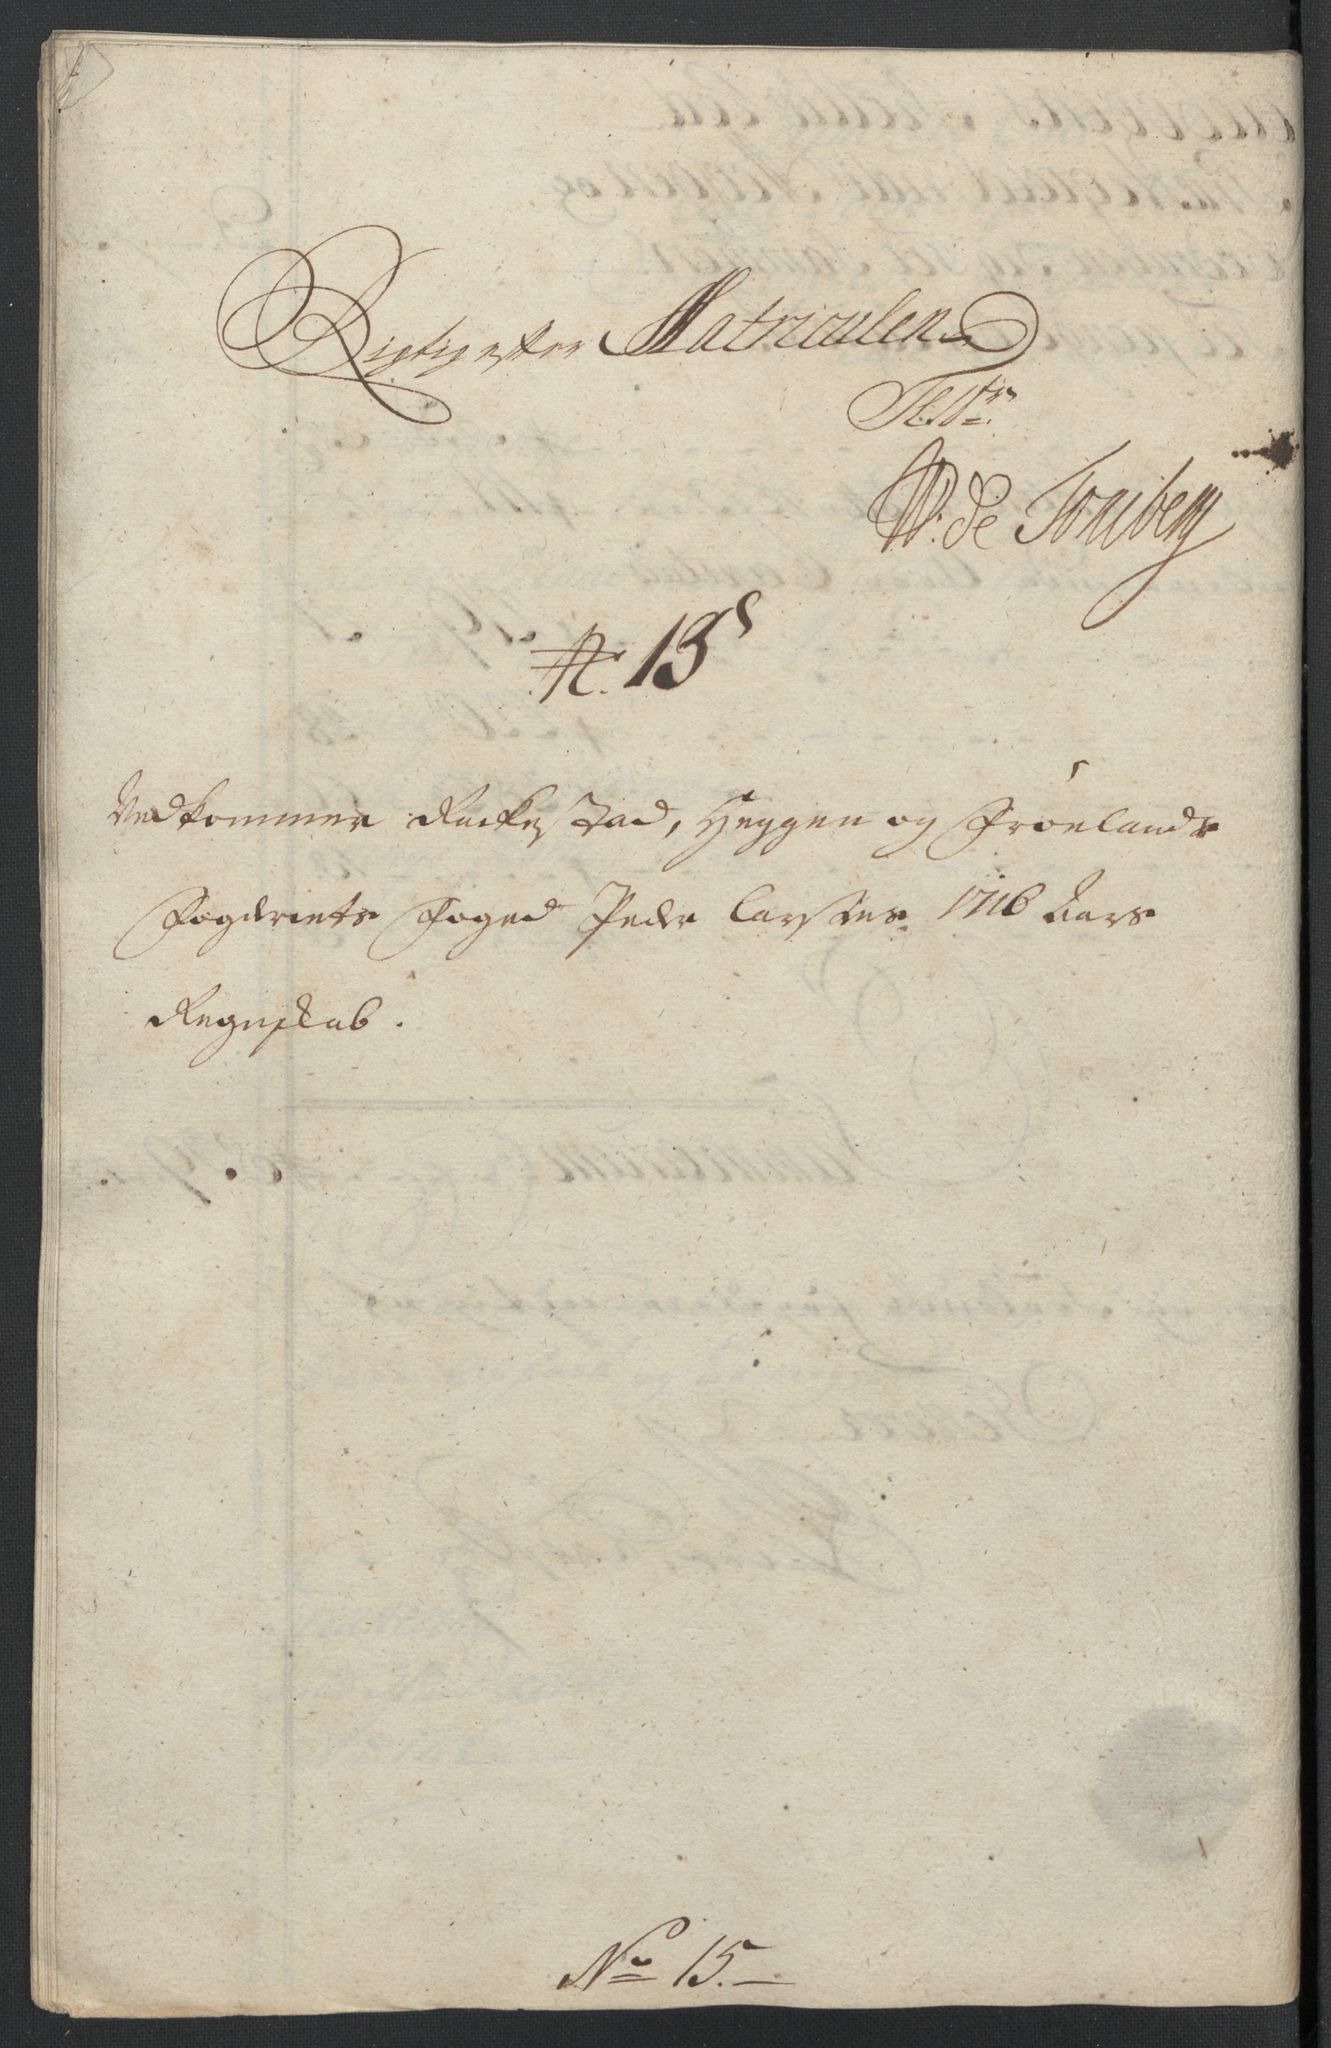 Rigtig efter Matriculen
Test:
W: de Tonsberg
N: 13
Vedkommer Rackestad, Heggen og Frøelands
Fogderiets Foged Peder Larsens 1716 Aars
Regnskab.
No 15.